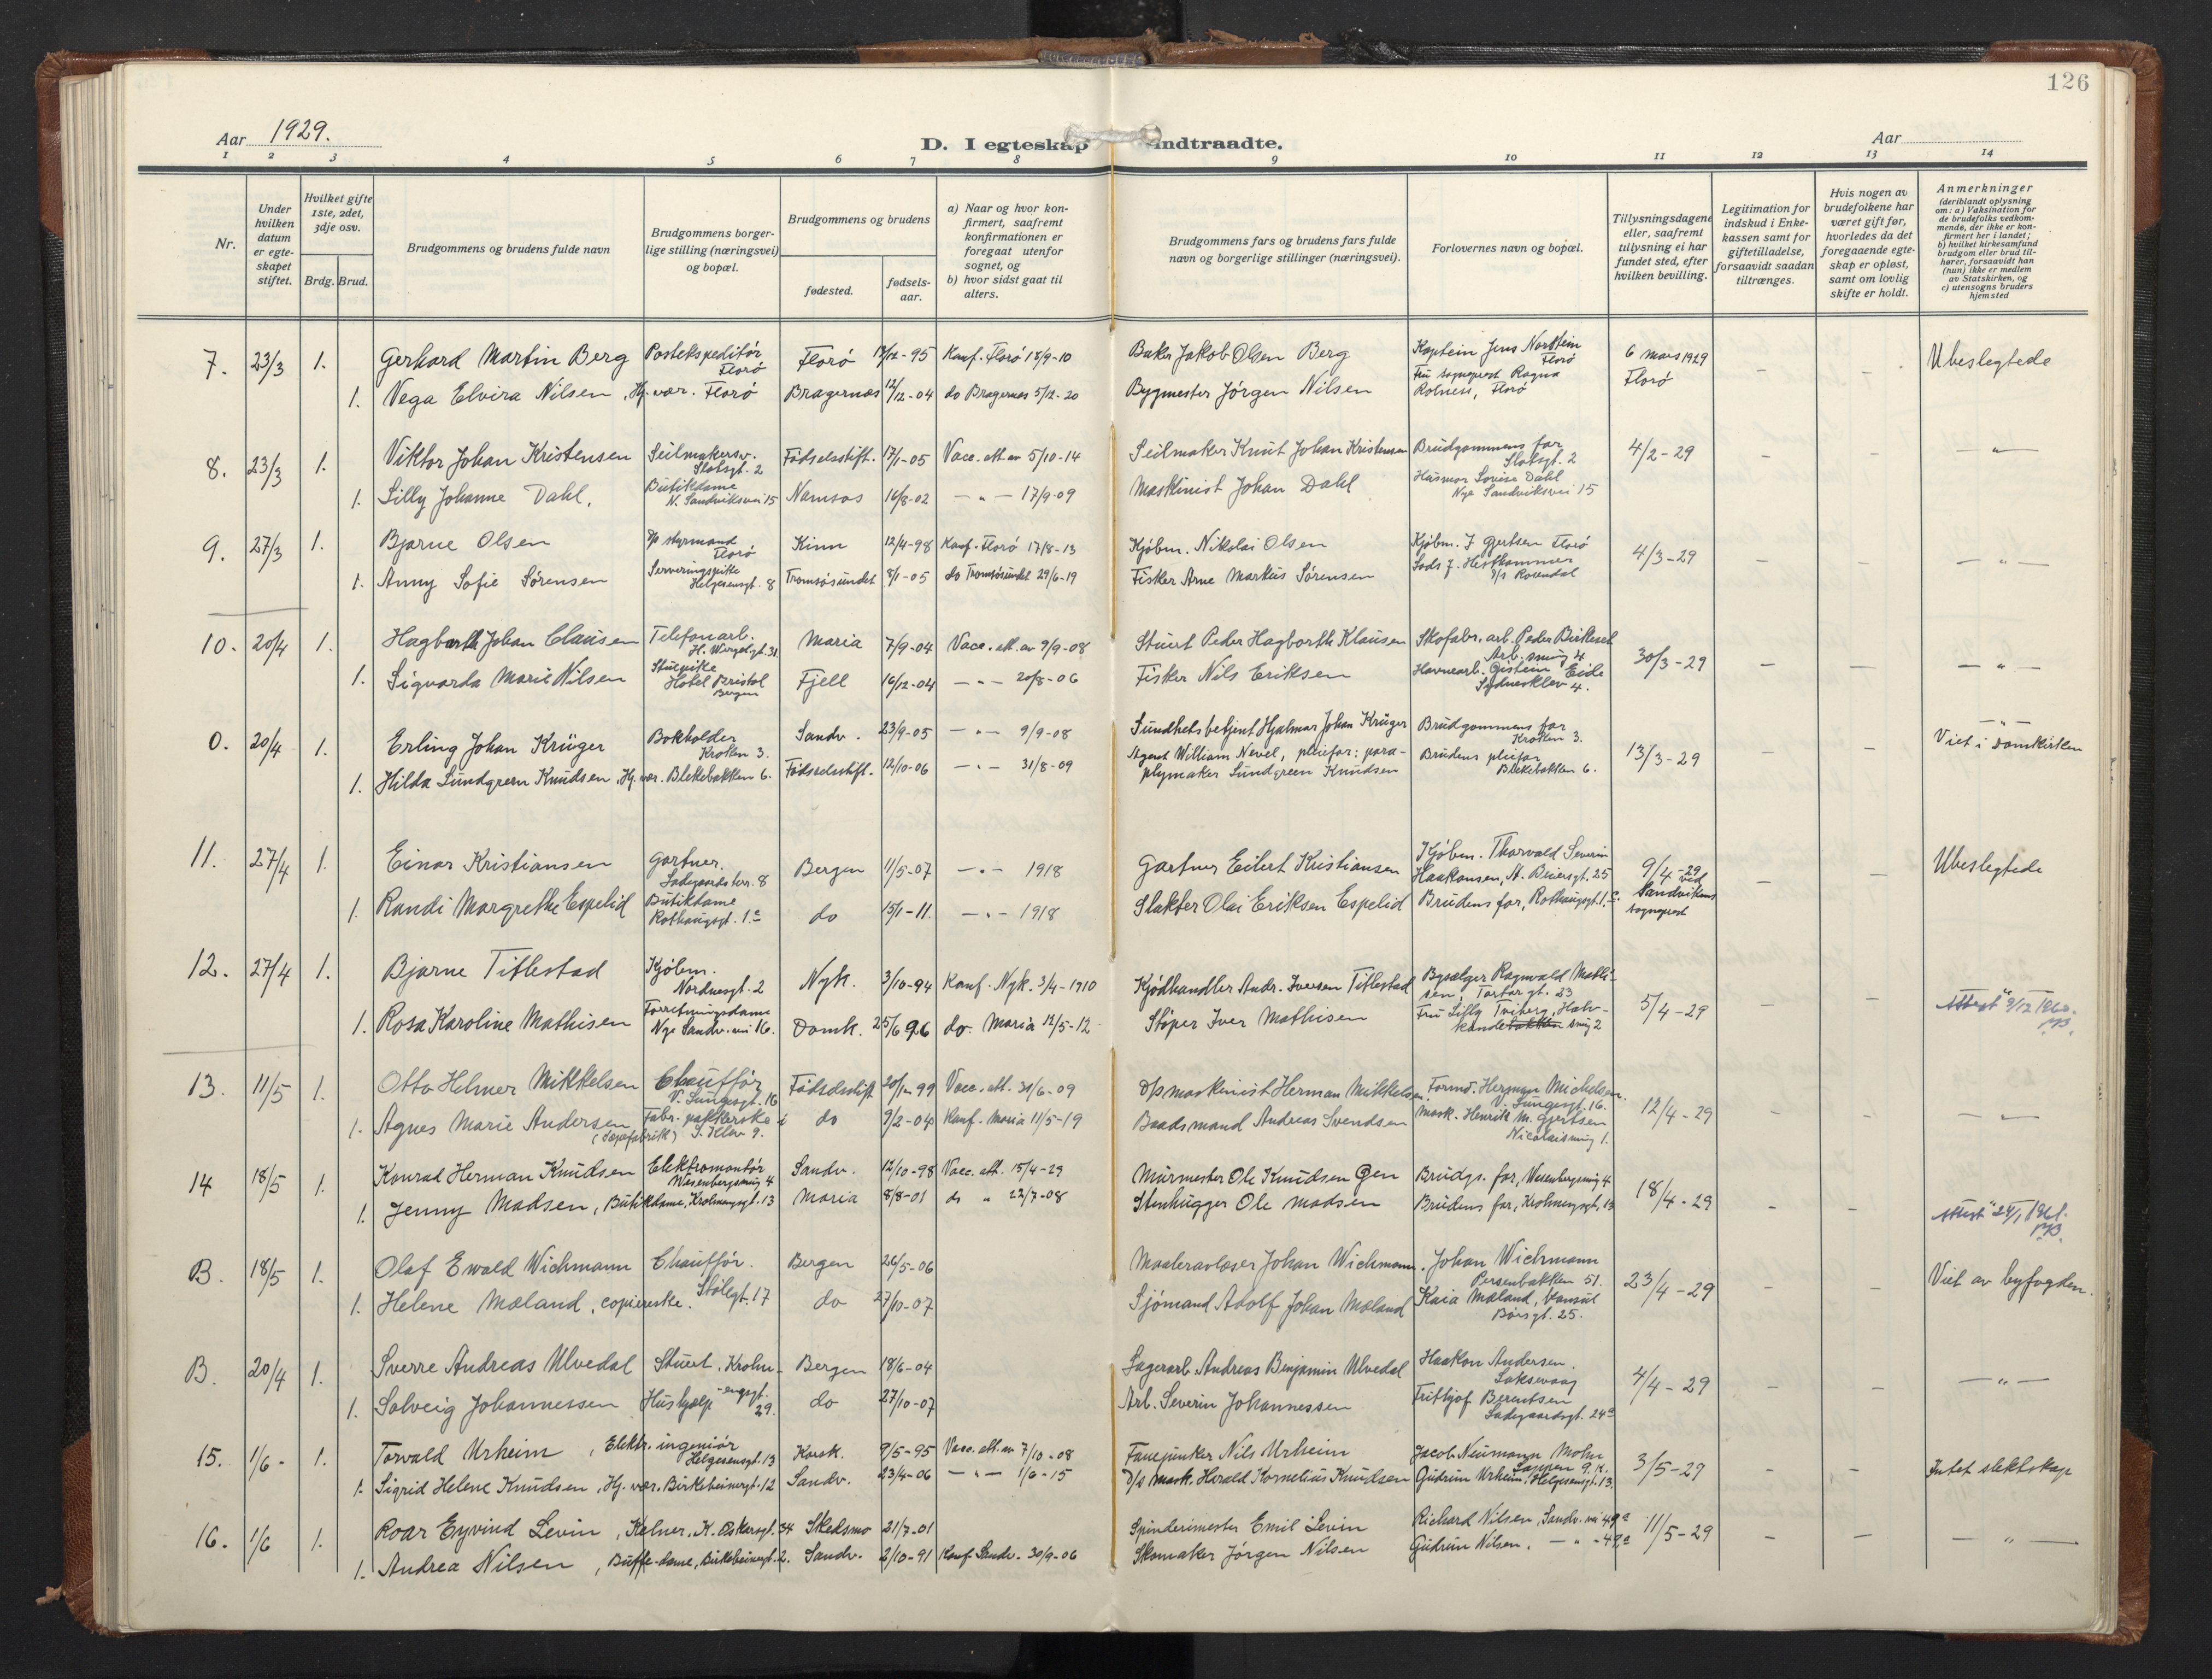 126
Aar 1929.
D. I egteskap indtraadte.
Aar
1 2 3 4 5 6 7 8 9 10 11 12 13 14
Nr.
Under hvilken datum er egteskapet stiftet.
Hvilket gifte 1ste, 2det, 3dje osv.
Brdg. Brud.
Brudgommens og brudens fulde navn
Brudgommens borgerlige stilling (næringsvei) og bopæl.
Brudgommens og brudens
fødested.
fødselsaar.
a) Naar og hvor konfirmert, saafremt konfirmationen er foregaat utenfor sognet, og
b) hvor sidst gaat til alters.
Brudgommens fars og brudens fars fulde navn og borgerlige stillinger (næringsvei).
Forlovernes navn og bopæl.
Tillysningsdagene eller, saafremt tillysning ei har fundet sted, efter hvilken bevilling.
Legitimation for indskud i Enkekassen samt for giftetilladelse, forsaavidt saadan tiltrænges.
Hvis nogen av brudefolkene har været gift før, hvorledes da det foregaaende egteskap er opløst, samt om lovlig skifte er holdt.
Anmerkninger (deriblandt oplysning om: a) Vaksination for de brudefolks vedkommende, der ikke er konfirmert her i landet; b) hvilket kirkesamfund brudgom eller brud tilhører, forsaavidt han (hun) ikke er medlem av Statskirken, og c) utensogns bruders hjemsted
7. 23/3 1. Gerhard Martin Berg Postekspeditør Florø Florø -95 Konf. Florø 18/9-10 Baker Jakob Olsen Berg Kaptein Jens Florø 6 mars 1929 Florø - - Ubeslegtede
1. Vega Elvira Nilsen, Hj. vær. Florø Bragernæs 12/12-04 do Bragernæs 5/12-20 Bygmester Jørgen Nilsen Fru sogneprest Ragna Rolness, Florø
8. 23/3 1. Viktor Johan Kristensen Seilmakersv. Slotsgt. 2 Fødselsstift. 17/1-05 Vacc. att. av 5/10-14 Seilmaker Knut Johan Kristensen Brudgommens far Slotsgt. 2 4/2-29 - - - " -
1. Lilly Johanne Dahl. Butikdame N. Sandviksvei 15 Namsos 16/8-02 - " - 17/9-09 Maskinist Johan Dahl Husmor Lovise Dahl Nye Sandviksvei 15
9. 27/3 1. Bjarne Olsen D/p styrmand Florø Kinn 12/4-98 Konf. Florø 17/8-13 Kjøbm. Nikolai Olsen Kjøbm. J Gjertsen Florø 4/3-29 - - - " -
1. Anny Sofie Sørensen Serveringspike Helgesensgt. 8 Tromsøsundet 8/1-05 do Tromsøsundet 29/6-19 Fisker Arne Markus Sørensen Lods J. Hesthammer D/s Rovendal
10. 20/4 1. Hagbarth Johan Clausen Telefonarb. H. Wergelgt. 31 Maria 7/9-04 Vacc. att. av 9/9-08 Stuert Peder Hagbarth Klausen Skofabr. arb. Peder Birkeset Arb. smug 4 30/3-29 - - - " -
1. Sigvarda Marie Nilsen Stuepike Hotel Bristol Bergen Fjell 16/12-04 - " - 20/8-06 Fisker Nils Eriksen Havnearb. Øistein Eide Sydnesklev 4.
0. 20/4 1. Erling Johan Krüger Bokholder Kroken 3. Sandv. 23/9-05 - " - 9/9-08 Sundhetsbetjent Hjalmar Johan Krüger Brudgommens far Kroken 3. 13/3-29 - - - " - Viet i Domkirken
1. Hilda Lundgreen Knudsen, Hj. vær. Blekebakken 6. Fødselsstift. 12/10-06 - " - 31/8-09 Agent William Nevel, pleiefar: paraplymaker Lundgreen Knudsen Brudens pleiefar Blekebakken 6.
11. 27/4 1. Einar Kristiansen Gartner. Ladegaardsterr. 8 Bergen 11/5-07 - " - 1918 Gartner Eilert Kristiansen Kjøbm. Thorvald Severin Haakonsen, A. Beiersgt. 25 9/4-29 ved Sandvikens sogneprest - - Ubeslegtede
1. Randi Margrethe Espelid Butikdame Rothaugsgt. 1c do 15/1-11. - " - 1918 Slakter Olai Eriksen Espelid Brudens far, Rothaugsgt. 1c
12. 27/4 1. Bjarne Titlestad Kjøbm. Nordnesgt. 2 Nyk. 3/10-94 Konf. Nyk. 3/4-1910 Kjødhandler Andr. Iversen Titlestad Bysælger Ragnvald Mathisen, Torborgt. 23 5/4-29 - - - " - Attest 9/12 1960.
1. Rosa Karoline Mathisen Forretningsdame Nye Sandv. vei 16. Domk. 25/6 96 do. Maria 12/5-12 Støper Iver Mathisen Fru Lilly Tviberg, Halvkandebakken smug 2
13. 11/5 1. Otto Helmer Mikkelsen Chauffør V. Lungegt. 16 Fødselsstift 99 Vacc. att. 31/6-09 D/s maskinist Herman Mikkelsen Formd. Herman Michelsen. V. Lungegt. 16. 12/4-29 - - - " -
1. Agnes Marie Andersen Fabr. pakkerske i (Sæpefabrik) S. Klev 9. do 9/2-04 Konf. Maria 11/5-19 Baadsmand Andreas Svendsen Mask. Henrik M. Gjertsen Nicolaismug 1.
14 18/5 1. Konrad Herman Knudsen Elektromontør Wesenbergsmug 4 Sandv. 12/10-98 Vacc. att. 15/4-29 Murmester Ole Knudsen Gjen Brudgs. far, Wesenbergsmug 4 18/4-29 - - - " -
1. Jenny Madsen, Butikdame, Krohnengsgt. 13 Maria 8/8-01 do " 22/7-08 Stenhugger Ole Madsen Brudens far, Krohnengsgt, 13 Attest 24/1 1961.
B. 18/5 1. Olaf Ewald Wichmann Chauffør. Bergen 26/5-06 Maaleravlæser Johan Wichmann. Johan Wichmann Persenbakken 51. 23/4-29 - - Viet av byfogden.
1. Helene Mæland, copierske. Stølegt. 17 do 27/10-07 Sjømand Adolf Johan Mæland Kaia Mæland, Konsul Børsgt. 25.
B. 20/4 1. Sverre Andreas Ulvedal Stuert. Krohnengsgt. 29. Bergen 18/6-04 Lagerarb. Andreas Benjamin Ulvedal Haakon Andersen. Laksevaag 4/4-29 - - - " -
1. Solveig Johannessen Hushjælp do 27/10-07 Arb. Severin Johannessen Fritjof Berentsen Ladegaardsgt. 24a
15. 1/6- 1. Torvald Urheim, Elektr. ingeniør Helgesensgt. 13 Korsk. 9/5-95 Vacc. att. av 7/10-08 Fanejunker Nils Urheim Jacob Neumann Mohn 3/5-29 - - Intet slektskap
1. Sigrid Helene Knudsen, Hj. vær. Birkebeinergt. 12 Sandv. 23/4-06 - " - 1/6-15 D/s Mask. Herald Kornelius Knudsen Gudrun Urheim, Helgesensgt. 13.
16. 1/6 1. Roar Eyvind Levin, Kelner, K. Oskarsgt. 34 Skedsmo 21/7-01 Spinderimester Emil Levin Richard Nilsen, Sandv. vei 49a 11/5-29 - - - " -
1. Andrea Nilsen, Buffe-dame, Birkebeinergt. 2. Sandv. 2/10-91 Konf Sandv. 30/9-06 Skomaker Jørgen Nilsen Gudrun Nilsen. - " - 49a